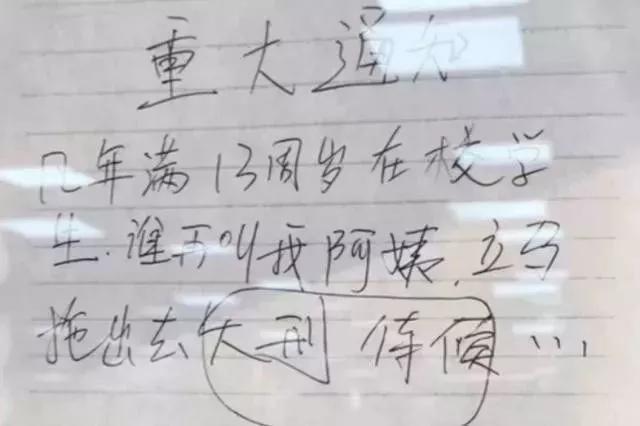 重大通知
凡年满13周岁在校学
生.谁再叫我阿姨.立马
拖出去大刑待候...